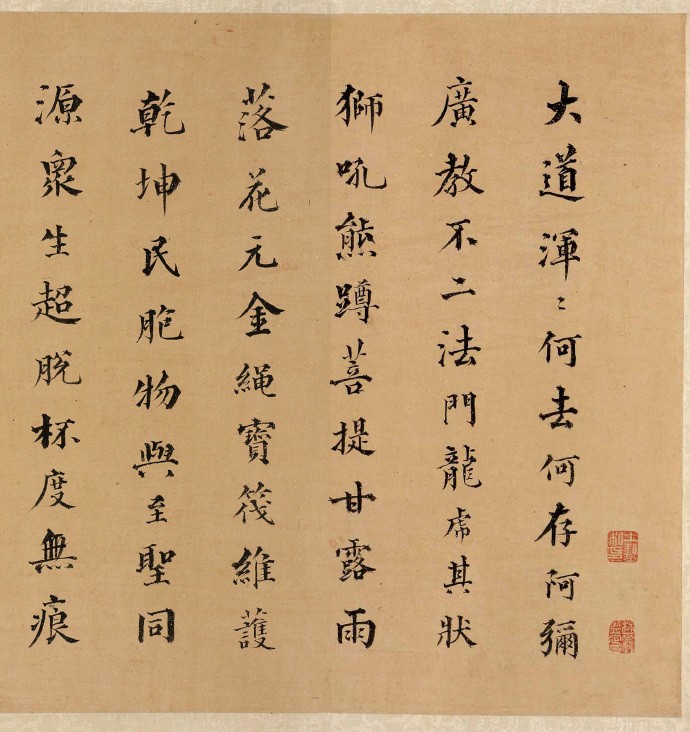 大道渾〻何去何存阿彌
廣教不二法門龍虎其狀
獅吼熊蹲菩提甘露雨
落花元金繩寶筏維護
乾坤民胞物與至聖同
源衆生超脫杯度無痕